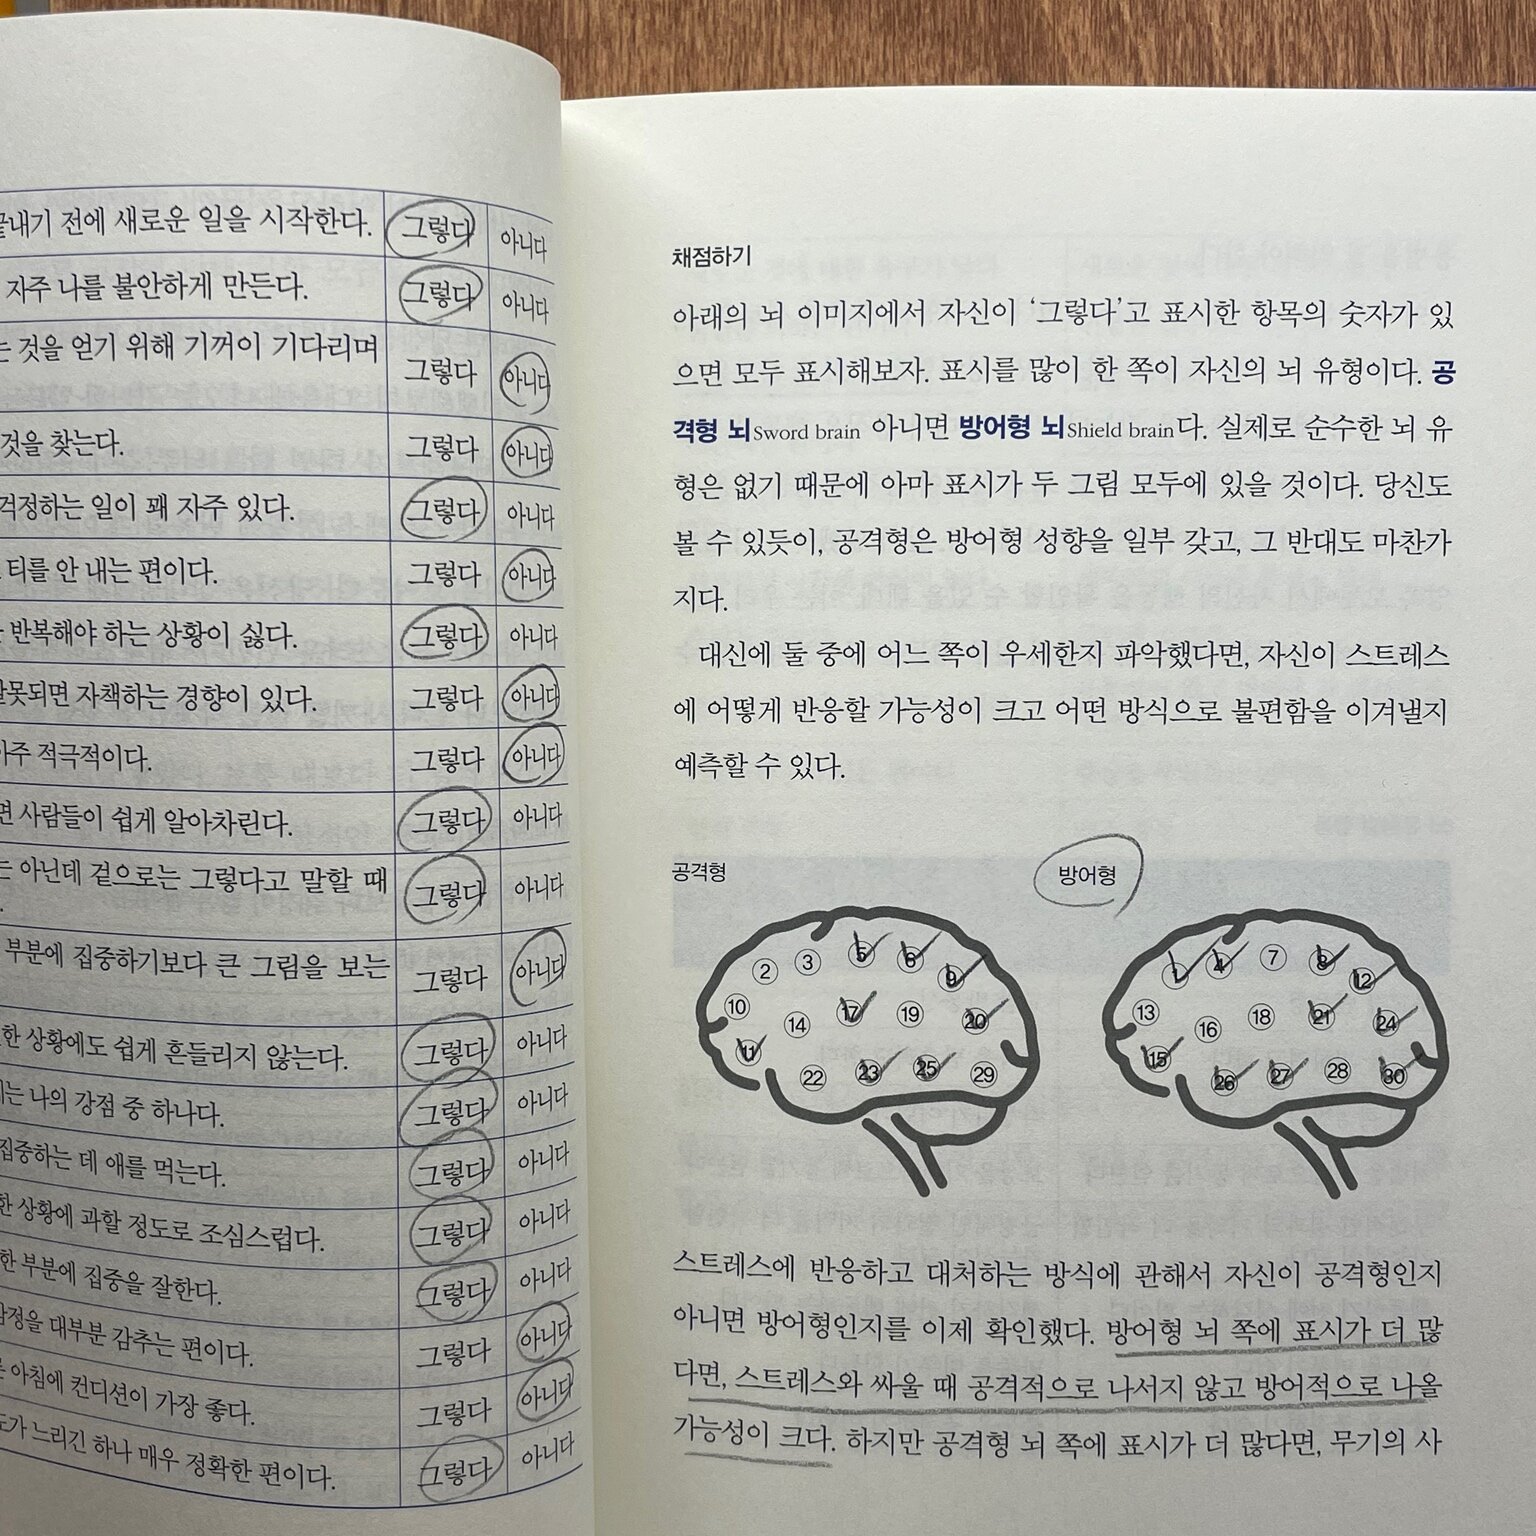 끝내기 전에 새로운 일을 시작한다. 그렇다 아니다
자주 나를 불안하게 만든다. 그렇다 아니다
것을 얻기 위해 기꺼이 기다리며 그렇다 아니다
것을 찾는다. 그렇다 아니다
걱정하는 일이 꽤 자주 있다. 그렇다 아니다
티를 안 내는 편이다. 그렇다 아니다
반복해야 하는 상황이 싫다. 그렇다 아니다
잘못되면 자책하는 경향이 있다. 그렇다 아니다
아주 적극적이다. 그렇다 아니다
면 사람들이 쉽게 알아차린다. 그렇다 아니다
는 아닌데 겉으로는 그렇다고 말할 때 그렇다 아니다
부분에 집중하기보다 큰 그림을 보는 그렇다 아니다
한 상황에도 쉽게 흔들리지 않는다. 그렇다 아니다
나의 강점 중 하나다. 그렇다 아니다
집중하는 데 애를 먹는다. 그렇다 아니다
한 상황에 과할 정도로 조심스럽다. 그렇다 아니다
한 부분에 집중을 잘한다. 그렇다 아니다
감정을 대부분 감추는 편이다. 그렇다 아니다
아침에 컨디션이 가장 좋다. 그렇다 아니다
느리긴 하나 매우 정확한 편이다. 그렇다 아니다
채점하기
아래의 뇌 이미지에서 자신이 ‘그렇다’고 표시한 항목의 숫자가 있
으면 모두 표시해보자. 표시를 많이 한 쪽이 자신의 뇌 유형이다. 공
격형 뇌Sword brain 아니면 방어형 뇌Shield brain다. 실제로 순수한 뇌 유
형은 없기 때문에 아마 표시가 두 그림 모두에 있을 것이다. 당신도
볼 수 있듯이, 공격형은 방어형 성향을 일부 갖고, 그 반대도 마찬가
지다.
대신에 둘 중에 어느 쪽이 우세한지 파악했다면, 자신이 스트레스
에 어떻게 반응할 가능성이 크고 어떤 방식으로 불편함을 이겨낼지
예측할 수 있다.
공격형
2 3 5 6 9
10 14 17 19 20
11 22 23 25 29
방어형
1 4 7 8 12
13 16 18 21 24
15 26 27 28 30
스트레스에 반응하고 대처하는 방식에 관해서 자신이 공격형인지
아니면 방어형인지를 이제 확인했다. 방어형 뇌 쪽에 표시가 더 많
다면, 스트레스와 싸울 때 공격적으로 나서지 않고 방어적으로 나올
가능성이 크다. 하지만 공격형 뇌 쪽에 표시가 더 많다면, 무기의 사